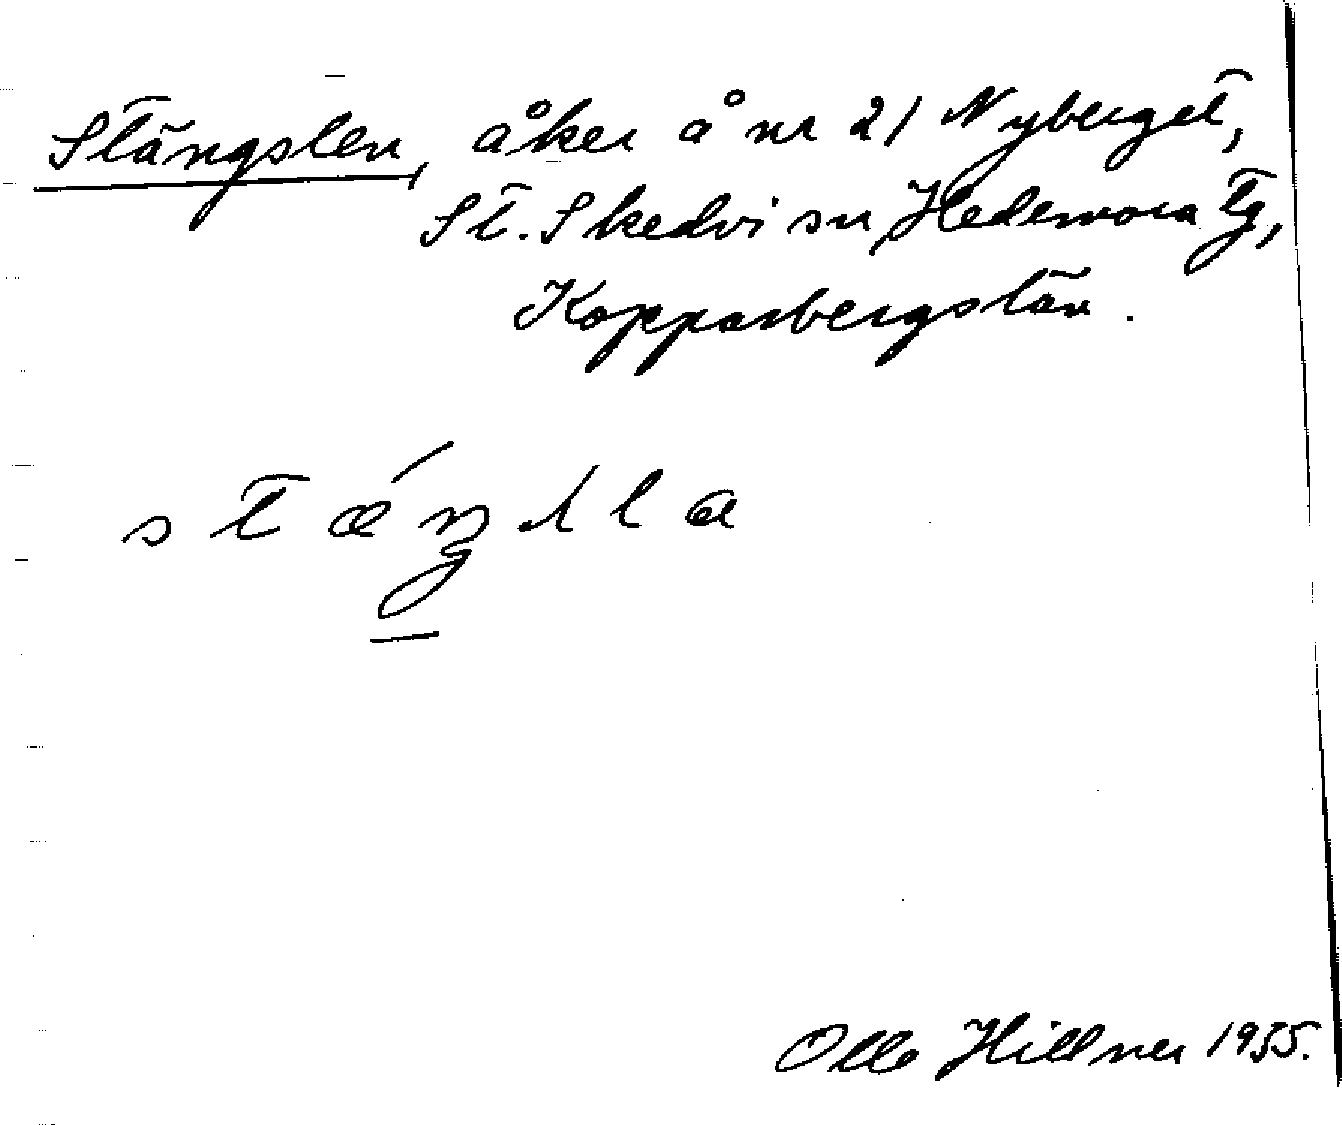 Stängslen, åker å nr 21 Nyberget,
St. Skedvi sn, Hedemora tg,
Kopparbergs län.
Olle Hillner 1955.